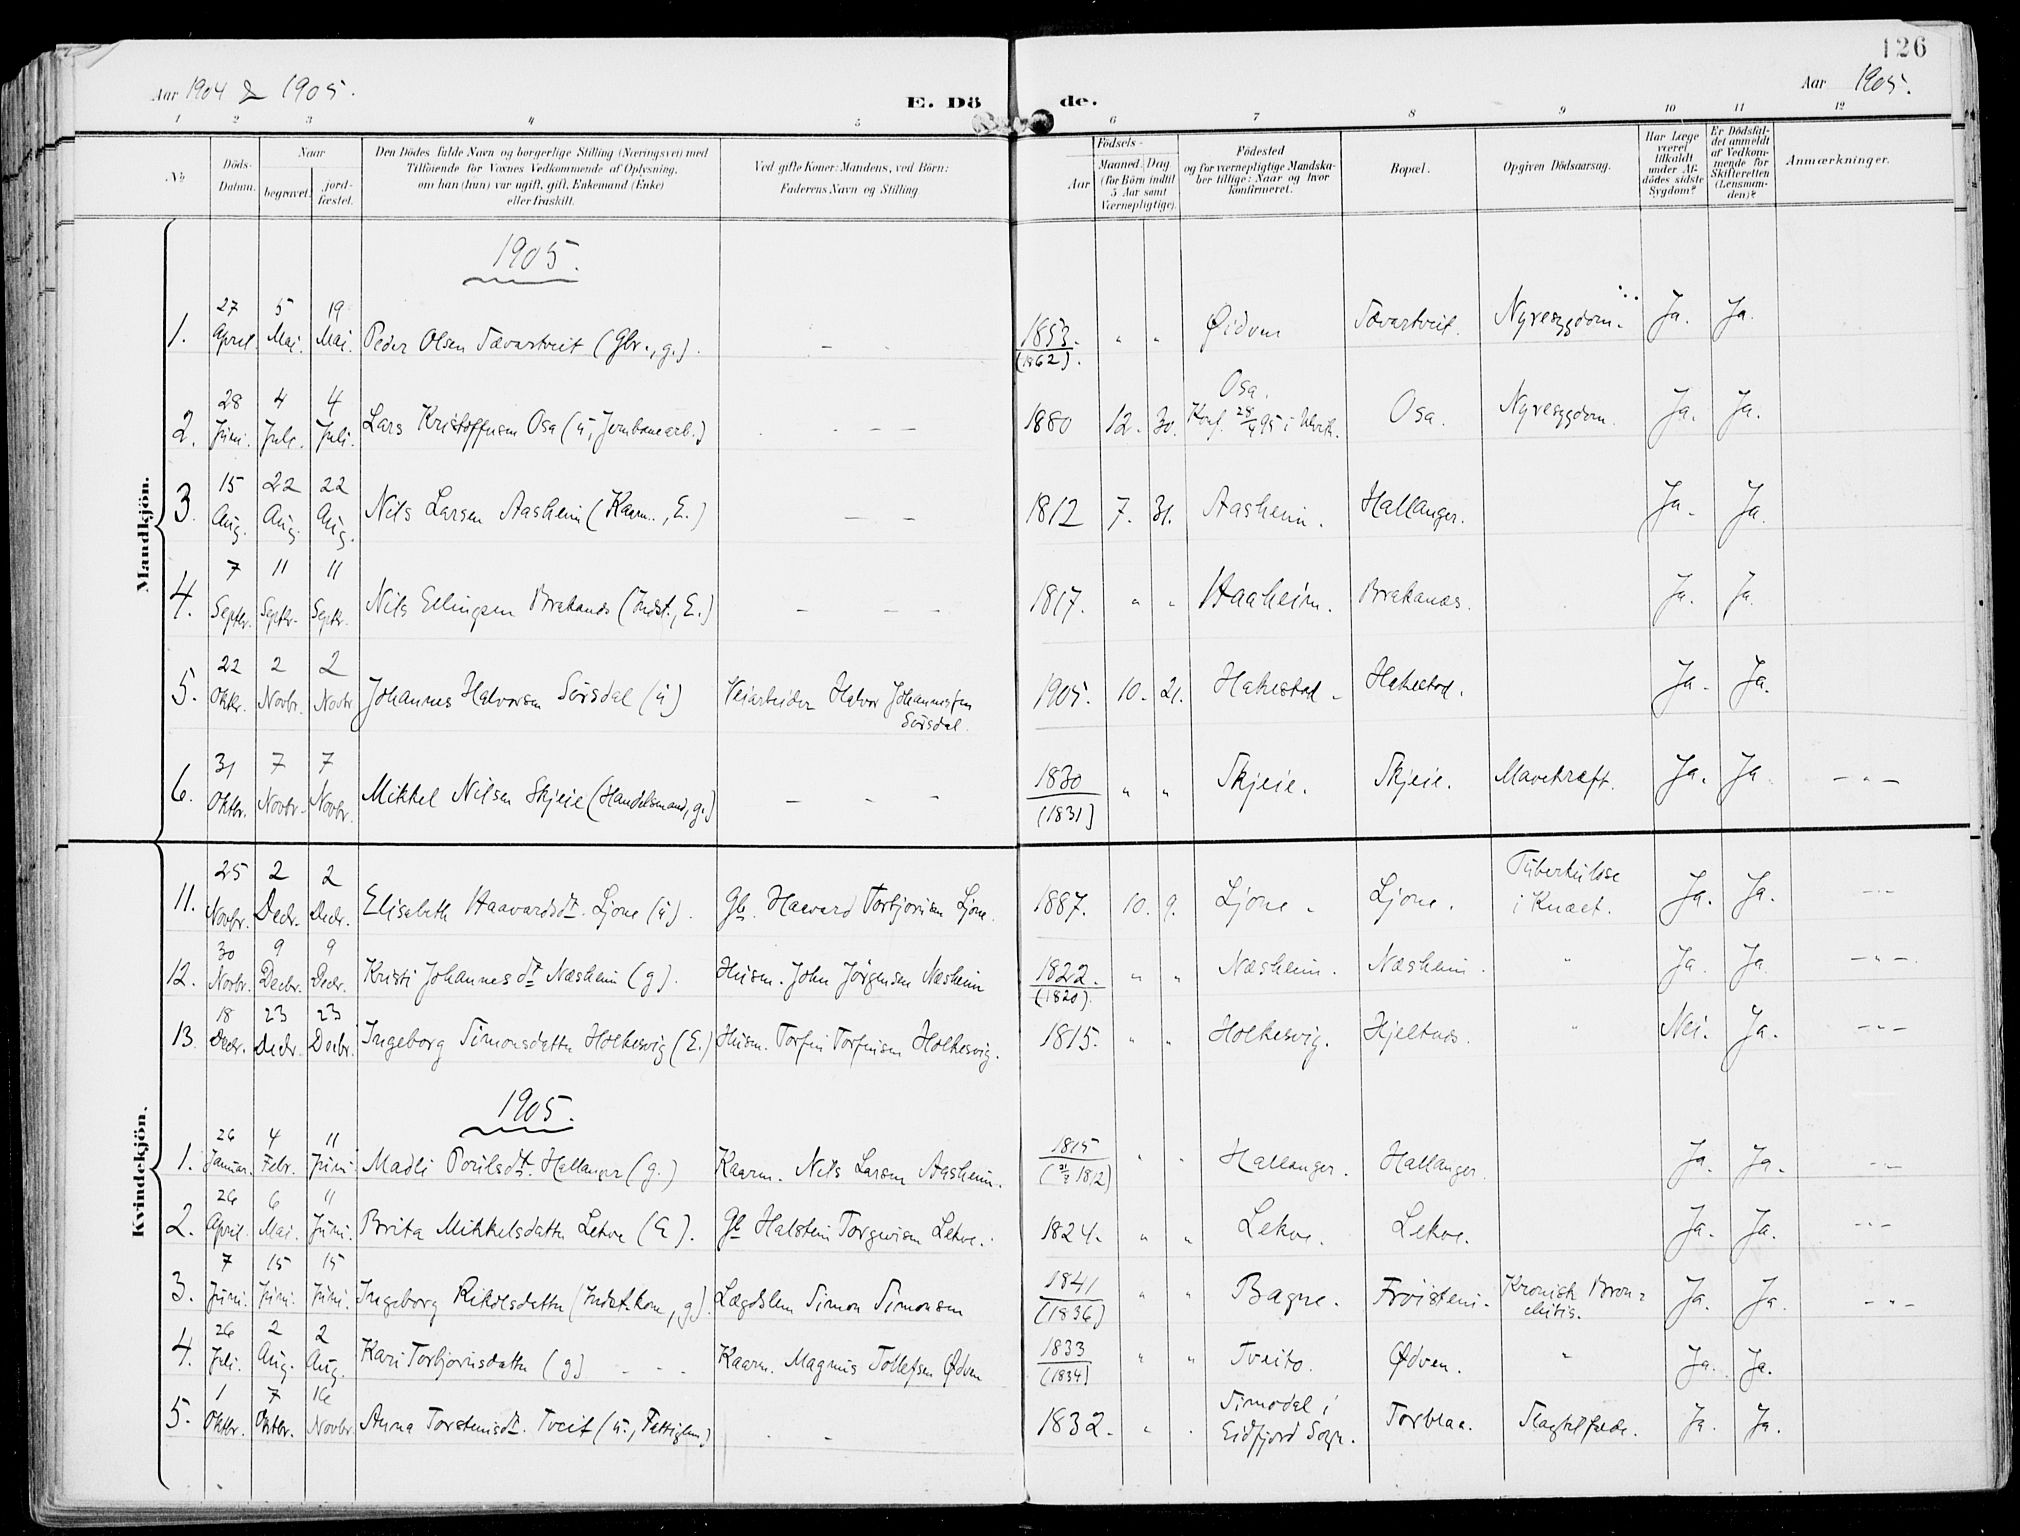 126
Aar 1904 & 1905.
E. Dö de.
Aar 1905.
1 2 3 4 5 6 7 8 9 10 11 12
No
Döds-Datum.
Naar
begravet.
jord-fæstet.
Den Dödes fulde Navn og borgerlige Stilling (Næringsvei) med
Tilföiende for Voxnes Vedkommende af Oplysning,
om han (hun) var ugift, gift, Enkemand (Enke)
eller fraskilt.
Ved gifte Koner: Mandens, ved Börn:
Faderens Navn og Stilling
Födsels-
Aar
Maaned. Dag.
(for Börn indtil
5 Aar samt
Værnepligtige).
Födested
og for værnepligtige Mandska-
ber tillige: Naar og hvor
Konfirmeret.
Bopæl.
Opgiven Dödsaarsag.
Har Læge
været
tilkaldt
under Af-
dödes sidste
Sygdom?
Er Dödsfal-
det anmeldt
af Vedkom-
mende for
Skifteretten
(Lensman-
den)?
Anmærkninger.
Mandkjön.
1905.
1. 27 April. 5 Mai. 19 Mai. Peder Olsen Tævartveit (Gbr., g.). - - - 1853. (1862). " " Øidven Tævartveit. Nyresygdom. Ja. Ja.
2. 28 Juni. 4 Juli. 4 Juli. Lars Kristoffersen Osa (ü, Jernbanearb.) - - - 1880 12. 30. Osa. Konf. 28/4 95 i Ulvik. Osa. Nyresygdom. Ja. Ja.
3. 15 Aug. 22 Aug. 22 Aug. Nils Larsen Aasheim (Kaarm., E.) - - 1812 7. 31. Aasheim. Hallanger. Ja. Ja.
4. 7 Septbr. 11 Septbr. 11 Septbr. Nils Ellingsen Brakanæs (Indst., E.) - - - 1817. " " Haaheim. Brakanæs. Ja. Ja.
5. 22 Oktbr. 2 Novbr. 2 Novbr. Johannes Halvorsen Sörsdal (ü) Veiarbeider Halvor Johannessen Sörsdal. 1905. 10. 21. Hakestad. Hakestad. Ja. Ja.
6. 31 Oktbr. 7 Novbr. 7 Novbr. Mikkel Nilsen Skjeie (Handelsmand, g.) - - - 1830 (1831) " " Skjeie. Skjeie. Mavekræft. Ja. Ja. - " -
Kvindekjön.
11. 25 Novbr. 2 Decbr. 2 Decbr. Elisabeth Haavardsdt. Ljone (ü). Gb. Haavard Torbjörnsen Ljone. 1887. 10. 9. Ljone. Ljone. Tüberkülose i Knæet. Ja. Ja. - " -
12. 30 Novbr. 9 Decbr. 9 Decbr. Kristi Johannesdt. Næsheim (g). Hüsm. John Jörgensen Næsheim 1822. (1820). " " Næsheim. Næsheim. " Ja. Ja - " -
13. 18 Decbr. 23 Decbr. 23 Decbr. Ingeborg Simonsdatter Holkesvig (E.) Hüsm. Torfin Torfinsen Holkesvig. 1815. " " Holkesvig. Hjeltnes. " Nei. Ja. - " -
1905.
1. 26 Januar. 4 Febr. 11 Juni Madli Poulsdt. Hallanger (g.) Kaarm. Nils Larsen Aasheim. 1815 (1812) " " Hallanger. Hallanger. Ja. Ja. - " -
2. 26 April. 6 Mai. 11 Juni. Brita Mikkelsdatter Lekve (E). Gb Halstein Torgeirsen Lekve. 1824. " " Lekve. Lekve. Ja. Ja. - " -
3. 7 Juni. 15 Juni. 15 Juni. Ingeborg Rikolsdatter (Indst.kone, g). Lægdslem Simon Simonsen 1841 (1836) " " Bagne. Fröistein. Kronisk Bron=chitis. Ja. Ja. - " -
4. 26 Juli. 2 Aug. 2 Aug. Kari Torbjörnsdatter (g) - - Kaarm. Magnus Tollefsen Ødven 1833 (1834) " " Tveito. Ødven. " Ja. Ja.
5. 1 Oktbr. 7 Oktbr. 16 Novbr. Anna Torsteinsdt. Tveit (ü., Fattiglem) - - 1832. " " Simodal i Eidfjord Sogn. Torblaa. Slagtilfælde. Ja. Ja.